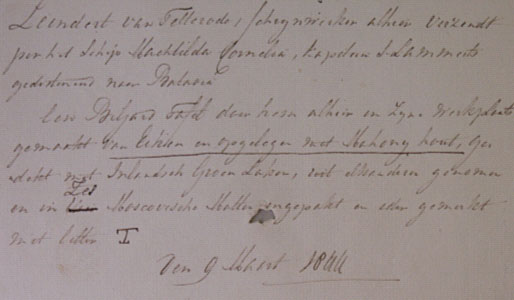 Leendert van Tetterode, Schrynwerker alhier Verzendt
per het Schip Machtilda Cornelia, Kapitein S. Lammerts
gedestineerd naar Batavia
Een Biljard Tafel door hem alhier in Zyne Werkplaats
gemaakt Van Eiken en opgelegen met Mahony hout, Ge
dekt met Inlandsch Groen Laken, uit elkanderen genomen
en in Zes Moscovische Matten ingepakt en eden gemerkt
met letter T
Den 9 Maart 1844